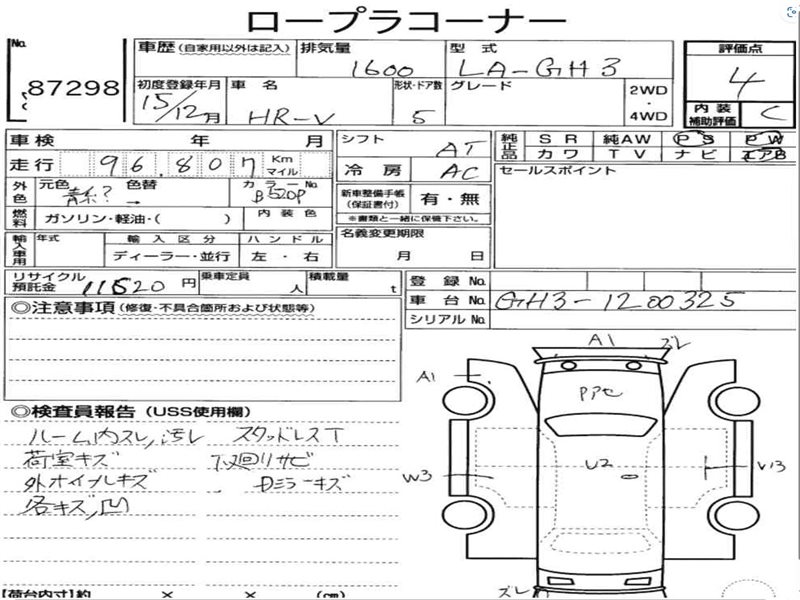 ロープラコーナー
No. 87298
車歴(自家用以外は記入) 排気量 1600 型式 LA-GH3 評価点 4
初度登録年月 15/12月 車名 HR-V 形状・ドア数 5 グレード 2WD・4WD 内装補助評価 C
車検 年 月 シフト AT 純正品 SR 純AW PS PW
カワ TV ナビ エアB
走行 96.807 Km マイル 冷房 AC セールスポイント
外色 元色 青 ? 色替 → カラーNo. B520P 新車整備手帳(保証書付) 有・無
※書類と一緒に保管下さい。
燃料 ガソリン・軽油・( ) 内装色
輸入車用 年式 輸入区分 ハンドル 名義変更期限
ディーラー・並行 左・右 月 日
リサイクル預託金 11520円 乗車定員 人 積載量 t 登録No.
車台No. GH3-1200325
シリアルNo.
◎注意事項(修復・不具合箇所および状態等)
◎検査員報告(USS使用欄)
ルーム内スレ,汚レ スタッドレスT
荷室キズ 下廻リサビ
外ホイールキズ Dミラーキズ
各キズ,凹
A1 ズレ
A1
PアセU2
W3
W3
ズレ
【荷台内寸】約 × × (cm)